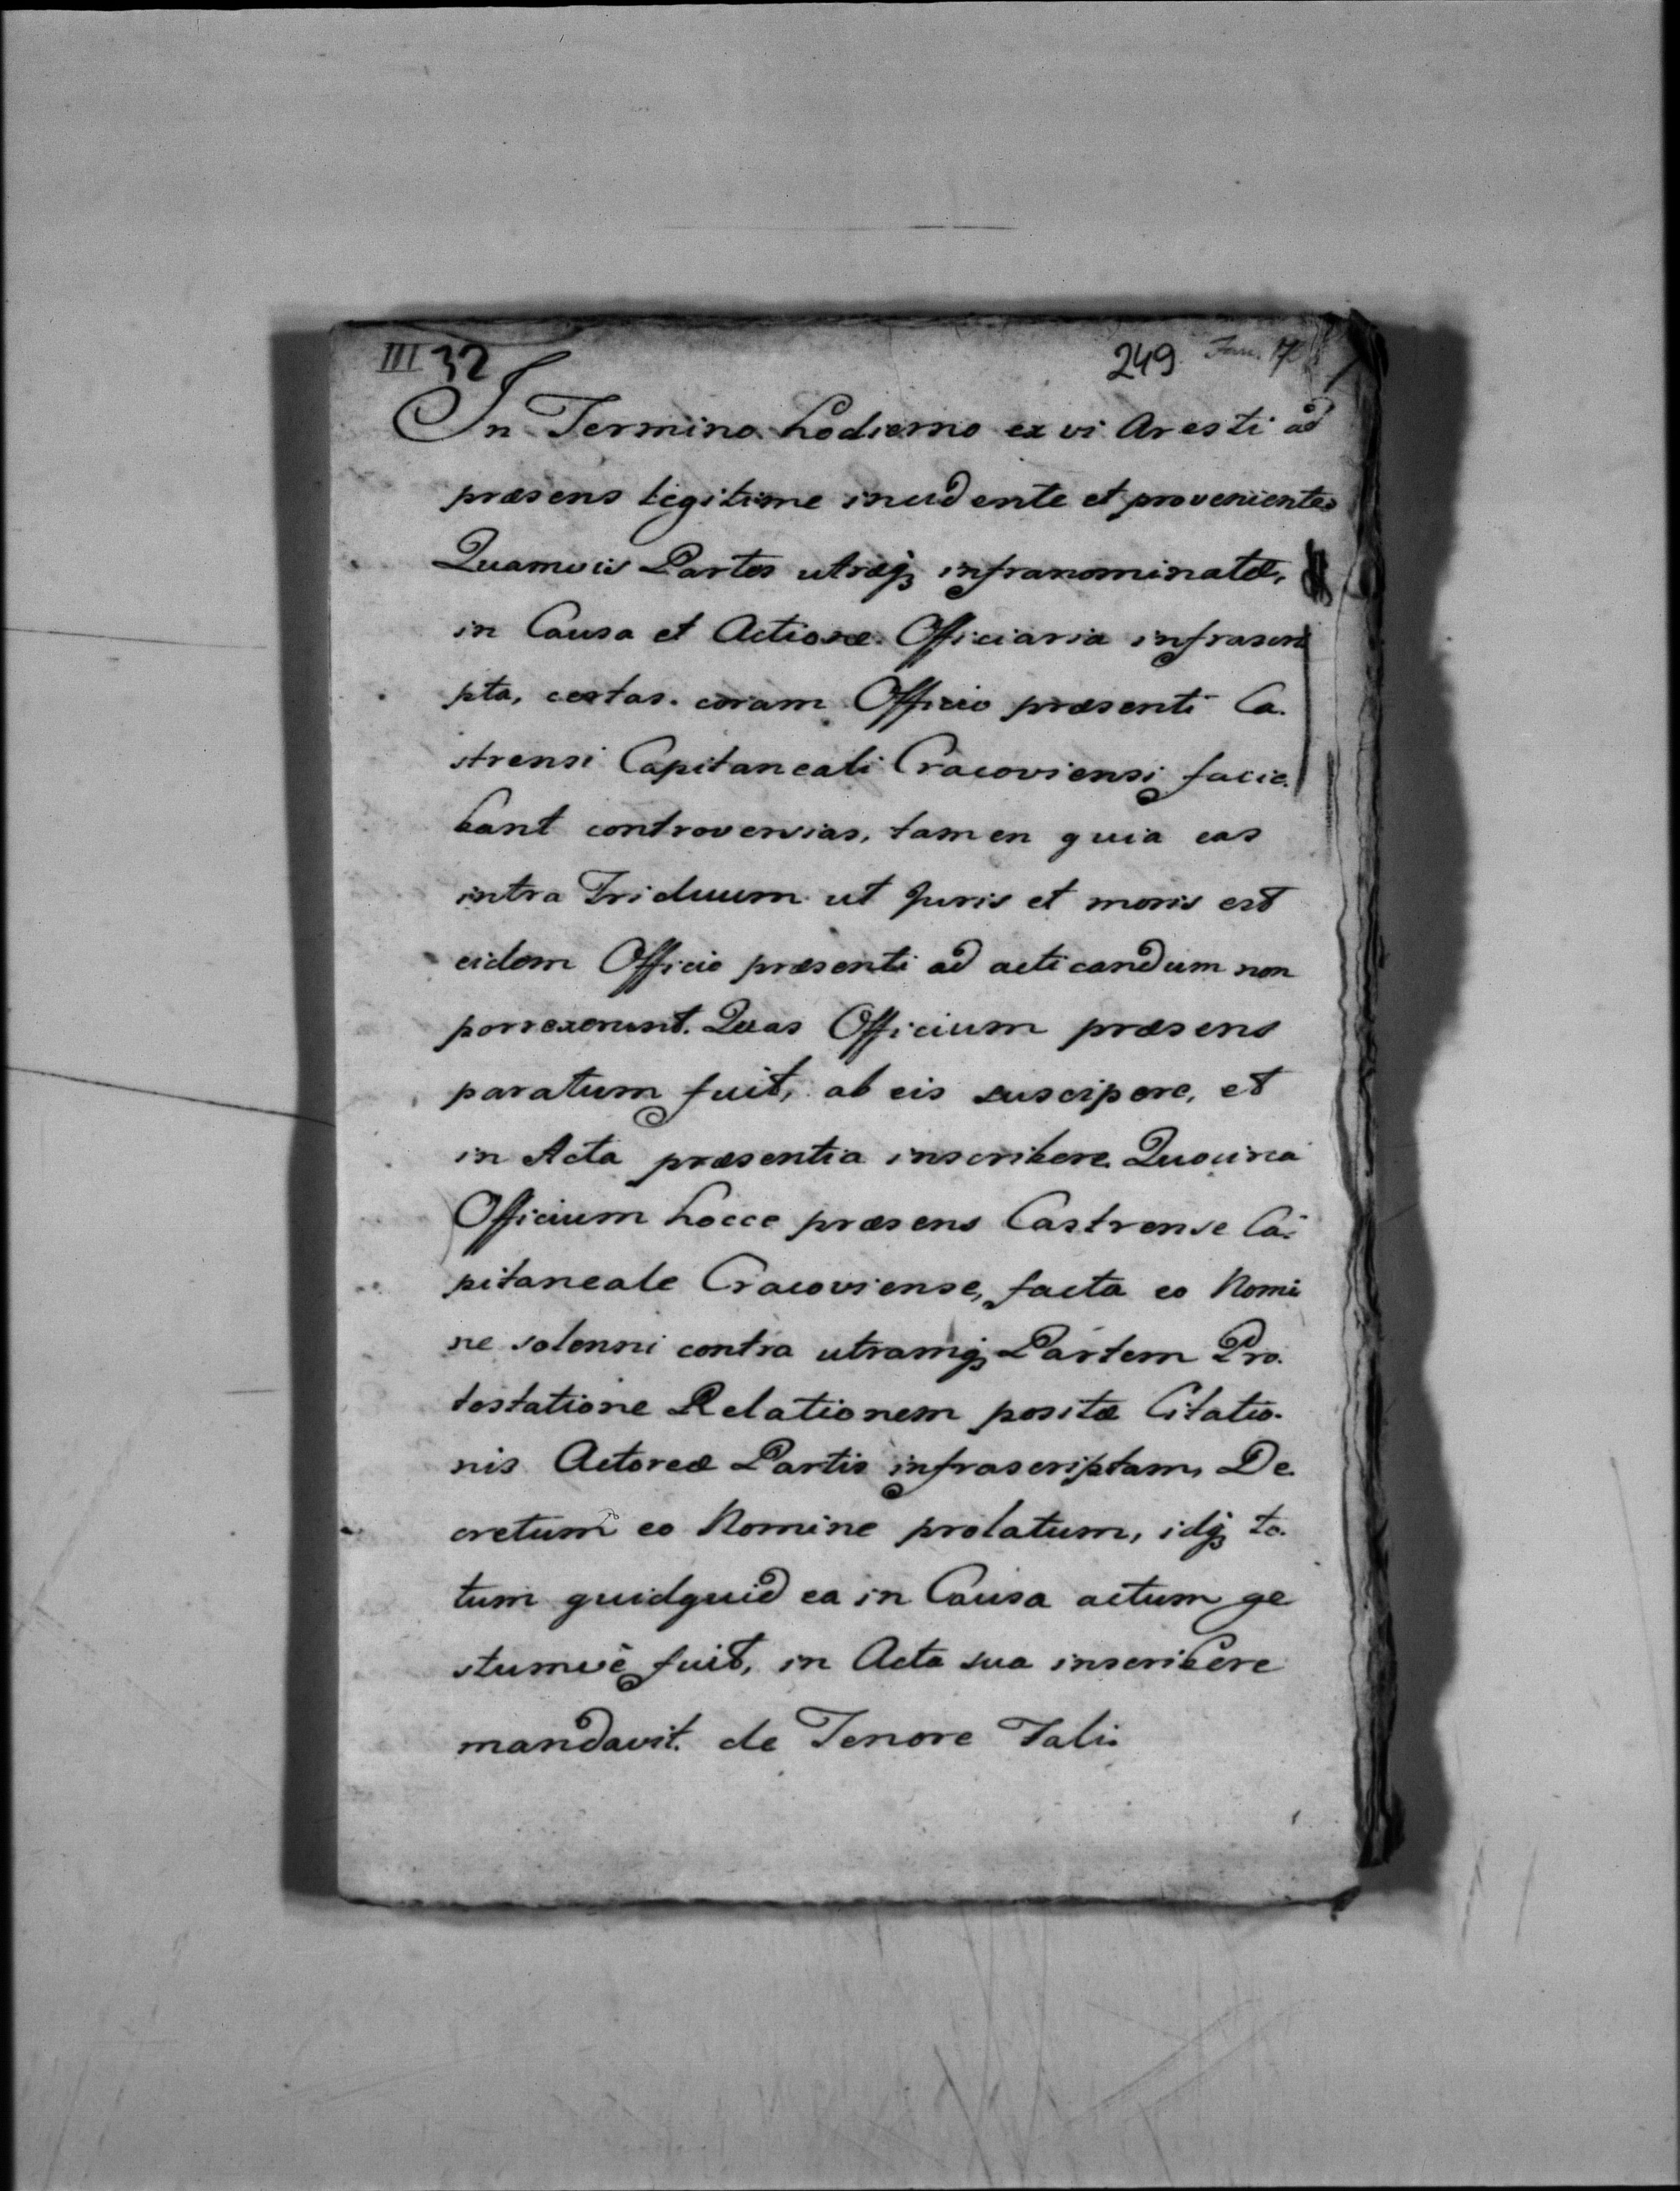 III 32 249
In Termino hodierno ex vi Aresti ad
præsens legitime incidente et proveniente
Quamvis Partes utræq; infranominatæ,
in Causa et Actione Officiaria infrascri
pta, certas. coram Officio præsenti Ca.
strensi Capitaneali Cracoviensi facie.
bant controversias, tamen quia eas
intra Triduum ut Juris et moris est
eidem Officio præsenti ad acticandum non
porrexerunt. Quas Officium præsens
paratum fuit, ab eis suscipere, et
in Acta præsentia inscribere. Quocirca
Officium hocce præsens Castrense Ca.
pitaneale Cracoviense, facta eo Nomi
ne solenni contra utramq; Partem Pro.
testatione Relationem positæ Citatio.
nis Actoreæ Partis infrascriptam, De.
cretum eo Nomine prolatum, idq; to.
tum quidquid ea in Causa actum ge
stumvè fuit, in Acta sua inscribere
mandavit. de Tenore Tali.